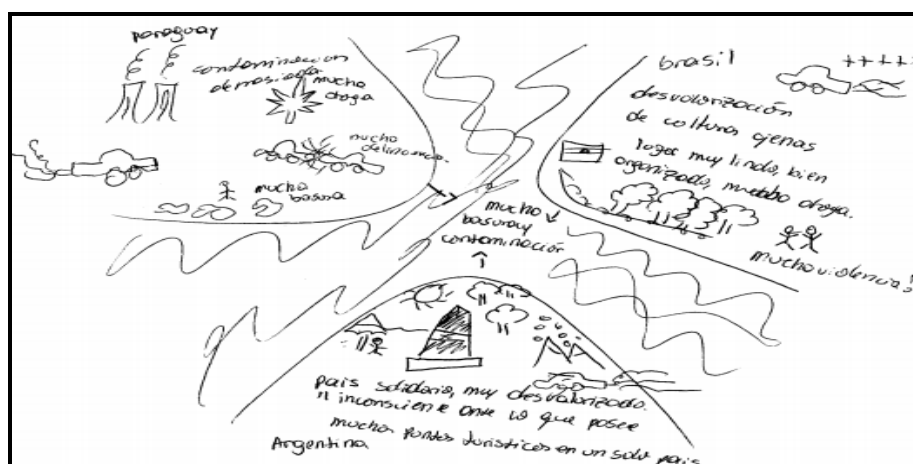 paraguay
contaminacion
demasiada
mucha
droga
mucha
delincuencia
mucha
basura
mucho
basura y
contaminación
brasil
desvalorización
de culturas ajenas
lugar muy lindo, bien
organizado, mucha droga.
mucha violencia!
pais solidario, muy desvalorizado.
" inconsciente ante lo que posee
muchos puntos turisticos en un solo pais
Argentina